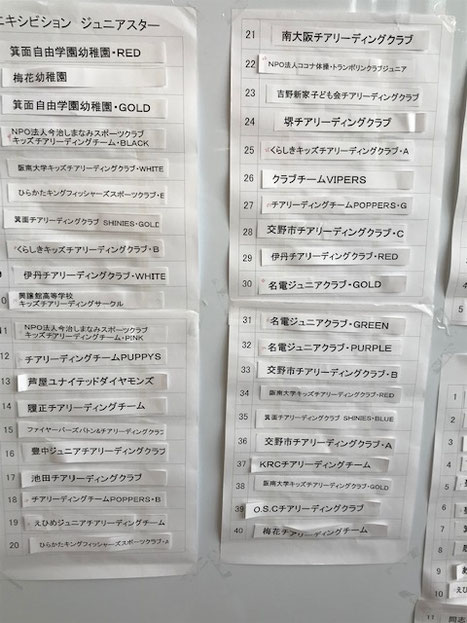 エキシビション ジュニアスター
箕面自由学園幼稚園・RED
梅花幼稚園
箕面自由学園幼稚園・GOLD
NPO法人今治しまなみスポーツクラブ
キッズチアリーディングチーム・BLACK
阪南大学キッズチアリーディングクラブ・WHITE
ひらかたキングフィッシャーズスポーツクラブ・B
箕面チアリーディングクラブ SHINIES・GOLD
くらしきキッズチアリーディングクラブ・B
伊丹チアリーディングクラブ・WHITE
興譲館高等学校
キッズチアリーディングサークル
11 NPO法人今治しまなみスポーツクラブ
キッズチアリーディングチーム・PINK
12 チアリーディングチームPUPPYS
13 芦屋ユナイテッドダイヤモンズ
14 履正チアリーディングチーム
15 ファイヤーバーズバトン&チアリーディングクラブ
16 豊中ジュニアチアリーディングクラブ
17 池田チアリーディングクラブ
18 チアリーディングチームPOPPERS・B
19 えひめジュニアチアリーディングチーム
20 ひらかたキングフィッシャーズスポーツクラブ・A
21 南大阪チアリーディングクラブ
22 NPO法人ココナ体操・トランポリンクラブジュニア
23 吉野新家子ども会チアリーディングクラブ
24 堺チアリーディングクラブ
25 くらしきキッズチアリーディングクラブ・A
26 クラブチームVIPERS
27 チアリーディングチームPOPPERS・G
28 交野市チアリーディングクラブ・C
29 伊丹チアリーディングクラブ・RED
30 名電ジュニアクラブ・GOLD
31 名電ジュニアクラブ・GREEN
32 名電ジュニアクラブ・PURPLE
33 交野市チアリーディングクラブ・B
34 阪南大学キッズチアリーディングクラブ・RED
35 箕面チアリーディングクラブ SHINIES・BLUE
36 交野市チアリーディングクラブ・A
37 KRCチアリーディングチーム
38 阪南大学キッズチアリーディングクラブ・GOLD
39 O.S.Cチアリーディングクラブ
40 梅花チアリーディングチーム
4
5
1
2
3
4
5
6
7
8
9
10
11